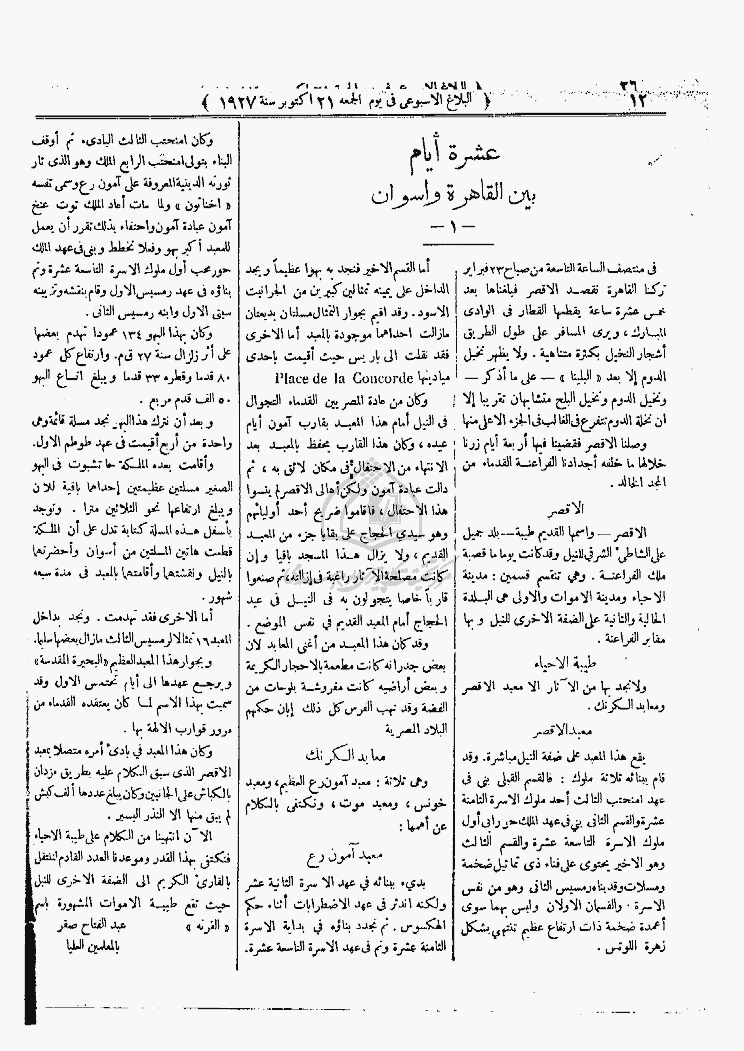 ٢٦
١٢
﴿ البلاغ الاسبوعى فى يوم الجمعه ٢١ اكتوبر سنة ١٩٢٧ ﴾
عشرة أيام
بين القاهرة واسوان
— ١ —
فى منتصف الساعة التاسعة من صباح ٢٣ فبراير
تركنا القاهرة نقصد الاقصر فبلغناها بعد
خمس عشرة ساعة يقطعها القطار فى الوادى
المبارك ، ويرى المسافر على طول الطريق
أشجار النخيل بكثرة متناهية . ولا يظهر نخيل
الدوم إلا بعد « البلينا » — على ما أذكر —
ونخيل الدوم ونخيل البلح متشابهان تقريبا إلا
ان نخلة الدوم تتفرع فى الغالب فى الجزء الاعلى منها
وصلنا الاقصر فقضينا فيها أربعة أيام زرنا
خلالها ما خلفه أجدادنا الفراعنة القدماء من
المجد الخالد .
الاقصر
الاقصر — واسمها القديم طيبة — بلد جميل
على الشاطئ الشرقى للنيل وقد كانت يوما ما قصبة
ملك الفراعنة . وهى تنقسم قسمين : مدينة
الاحياء ومدينة الاموات والاولى هى البلدة
الحالية والثانية على الضفة الاخرى للنيل و بها
مقابر الفراعنة .
طيبة الاحياء
ولا نجد بها من الآثار الا معبد الاقصر
ومعابد الكرنك .
معبد الاقصر
يقع هذا المعبد على ضفة النيل مباشرة. وقد
قام ببنائه ثلاثة ملوك : فالقسم القبلى بنى فى
عهد امنحتب الثالث أحد ملوك الاسرة الثامنة
عشرة والقسم الثانى بنى فى عهد الملك حورابى أول
ملوك الاسرة التاسعة عشرة والقسم الثالث
وهو الاخير يحتوى على فناء ذى تماثيل ضخمة
ومسلات وقد بناه رمسيس الثانى وهو من نفس
الاسرة . والقسمان الاولان وليس بهما سوى
أعمدة ضخمة ذات ارتفاع عظيم تنتهى بشكل
زهرة اللوتس .
أما القسم الاخير فنجد به بهوا عظيماً ويجد
الداخل على يمينه تمثالين كبيرين من الجرانيت
الاسود . وقد اقيم بجوار التمثال مسلتان بديعتان
مازالت احداهما موجودة بالمعبد أما الاخرى
فقد نقلت الى باريس حيث أقيمت باحدى
ميادينها Place de la Concorde
وكان من عادة المصريين القدماء التجوال
فى النيل أمام هذا المعبد بقارب آمون أيام
عيده ، وكان هذا القارب يحفظ بالمعبد بعد
الانتهاء من الاحتفال فى مكان لائق به ، ثم
دالت عبادة آمون ولكن أهالى الاقصر لم ينسوا
هذا الاحتفال ، فاقاموا ضريح أحد أوليائهم
وهو سيدى الحجاج على بقايا جزء من المعبد
القديم ، ولا يزال هذا المسجد باقيا وإن
كانت مصلحة الآثار راغبة فى إزالته، ثم صنعوا
قارباً خاصا يتجولون به فى النيل فى عيد
الحجاج أمام المعبد القديم فى نفس الموضع .
وقد كان هذا المعبد من أغنى المعابد لان
بعض جدرانه كانت مطعمة بالاحجار الكريمة
و بعض أراضيه كانت مفروشة بلوحات من
الفضة وقد نهب الفرس كل ذلك إبان حكمهم
البلاد المصرية
معابد الكرنك
وهى ثلاثة : معبد آمون رع العظيم، ومعبد
خونس ، ومعبد موت ، ونكتفى بالكلام
عن أهمها :
معبد آمون رع
بدىء ببنائه فى عهد الاسرة الثانية عشر
ولكنه اندثر فى عهد الاضطرابات أثناء حكم
الهكسوس . ثم تجدد بناؤه فى بداية الاسرة
الثامنة عشرة وتم فى عهد الاسرة التاسعة عشرة.
وكان امنحتب الثالث البادىء ثم أوقف
البناء بتولى امنحتب الرابع الملك وهو الذى ثار
ثورته الدينية المعروفة على آمون رع وسمى نفسه
« اخناتون » ولما مات أعاد الملك توت عنخ
آمون عبادة آمون واحتفاء بذلك تقرر أن يعمل
للمعبد أكبر بهو وفعلا تخطط و بنى فى عهد الملك
حورمحب أول ملوك الاسرة التاسعة عشرة وتم
بناؤه فى عهد رمسيس الاول وقام بنقشه وتزيينه
سيتى الاول وابنه رمسيس الثانى .
وكان بهذا البهو ١٣٤ عمودا تهدم بعضها
على أثر زلزال سنة ٢٧ ق.م. وارتفاع كل عمود
٨٠ قدما وقطره ٣٣ قدما ويبلغ اتساع البهو
٥٠ الف قدم مربع .
و بعد أن نترك هذا البهو نجد مسلة قائمة وهى
واحدة من أربع أقيمت فى عهد طوطم الاول.
وأقامت بعده الملكة حاتشبوت فى البهو
الصغير مسلتين عظيمتين إحداهما باقية للآن
و يبلغ ارتفاعها نحو الثلاثين مترا . وتوجد
بأسفل هذه المسلة كتابة تدل على أن الملكة
قطعت هاتين المسلتين من أسوان وأحضرتها
بالنيل ونقشتها وأقامتها بالمعبد فى مدة سبعة
شهور .
أما الاخرى فقد تهدمت . ونجد بداخل
المعبد ١٦ تمثالا لرمسيس الثالث مازال بعضها سليما.
و بجوار هذا المعبد العظيم « البحيرة المقدسة »
و يرجع عهدها الى أيام تحتمس الاول وقد
سميت بهذا الاسم لما كان يعتقده القدماء من
مرور قوارب الآلهة بها .
وكان هذا المعبد فى بادئ أمره متصلا بمعبد
الاقصر الذى سبق الكلام عليه بطريق مزدان
بالكباش على الجانبين وكان يبلغ عددها ألف كبش
لم يبق منها الا النذر اليسير .
الآن انتهينا من الكلام على طيبة الاحياء
فنكتفى بهذا القدر وموعدنا العدد القادم لننتقل
بالقارئ الكريم الى الضفة الاخرى للنيل
حيث تقع طيبة الاموات المشهورة باسم
« القرنه » عبد الفتاح صقر
بالمعلمين العليا